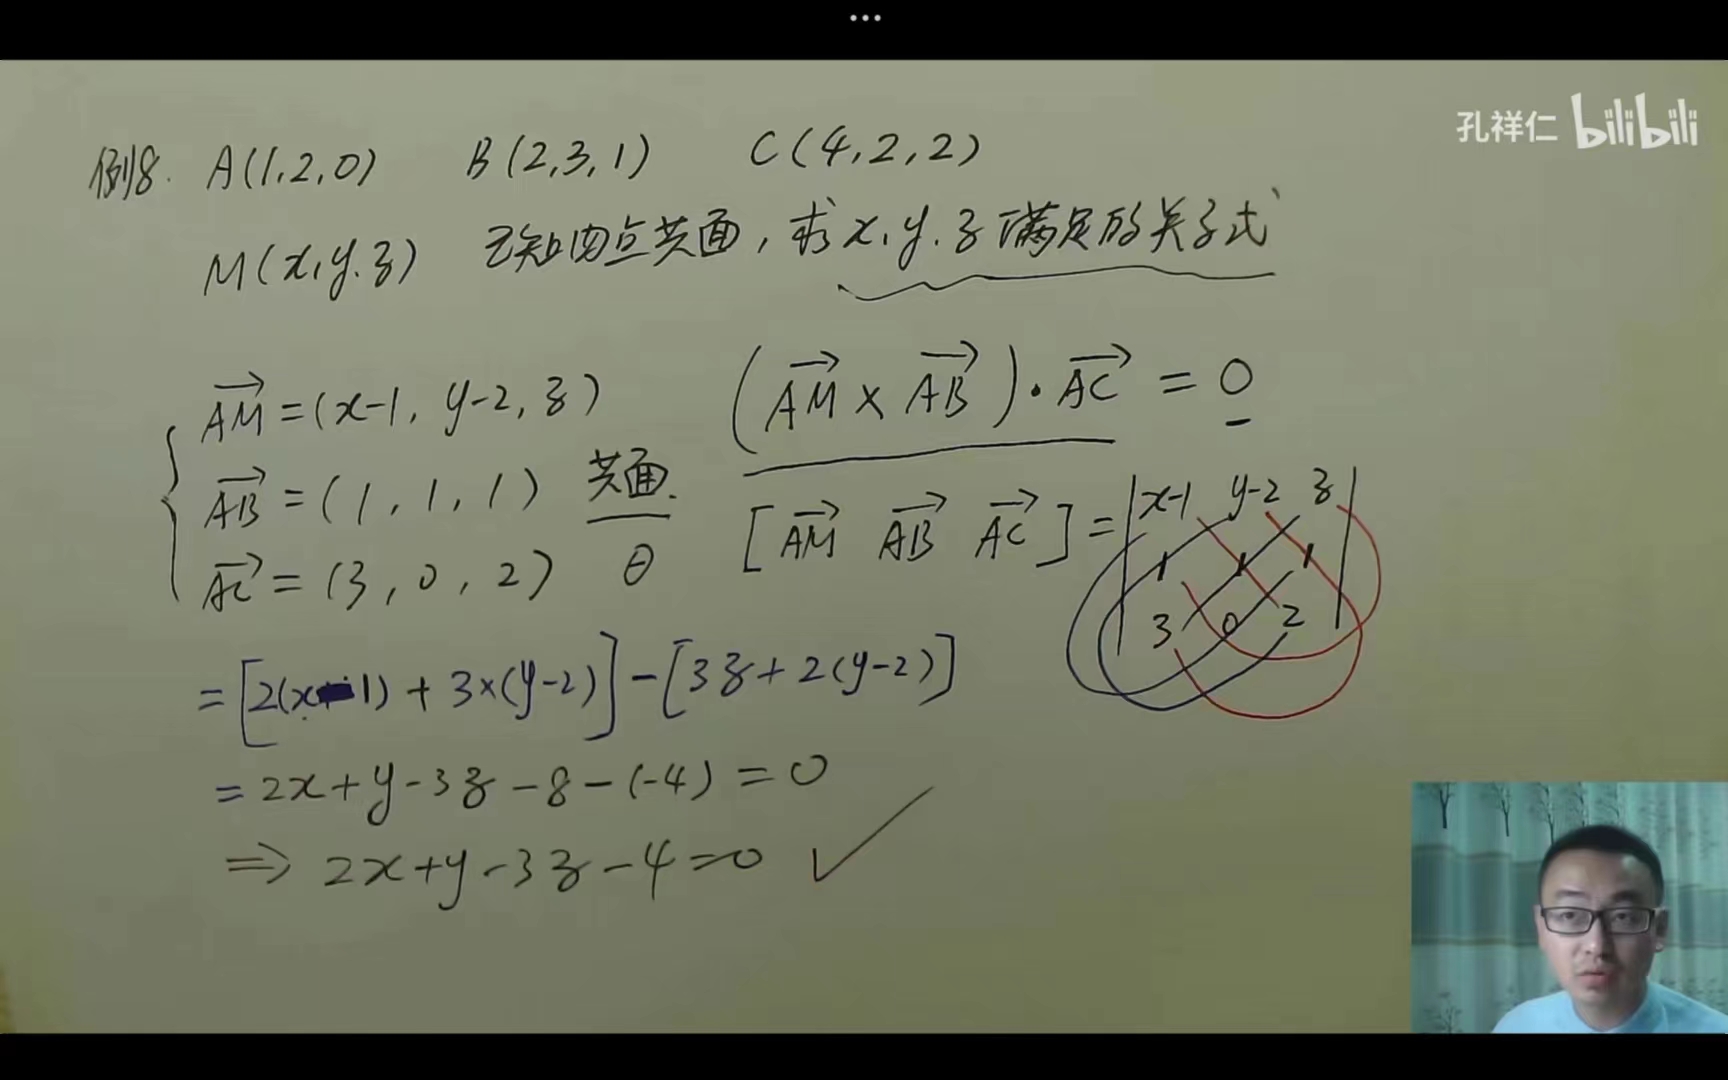 ...
孔祥仁 bilibili
例8. A(1,2,0) B(2,3,1) C(4,2,2)
M(x,y,z) 已知四点共面，求x,y,z满足的关系式
AM=(x-1, y-2, z) (AM×AB)·AC=0
AB=(1,1,1) 共面.
AC=(3,0,2) θ [AM AB AC]=|x-1 y-2 z|
1 1 1
3 0 2
=[2(x-1)+3×(y-2)]-[3z+2(y-2)]
=2x+y-3z-8-(-4)=0
⇒ 2x+y-3z-4=0 ✓